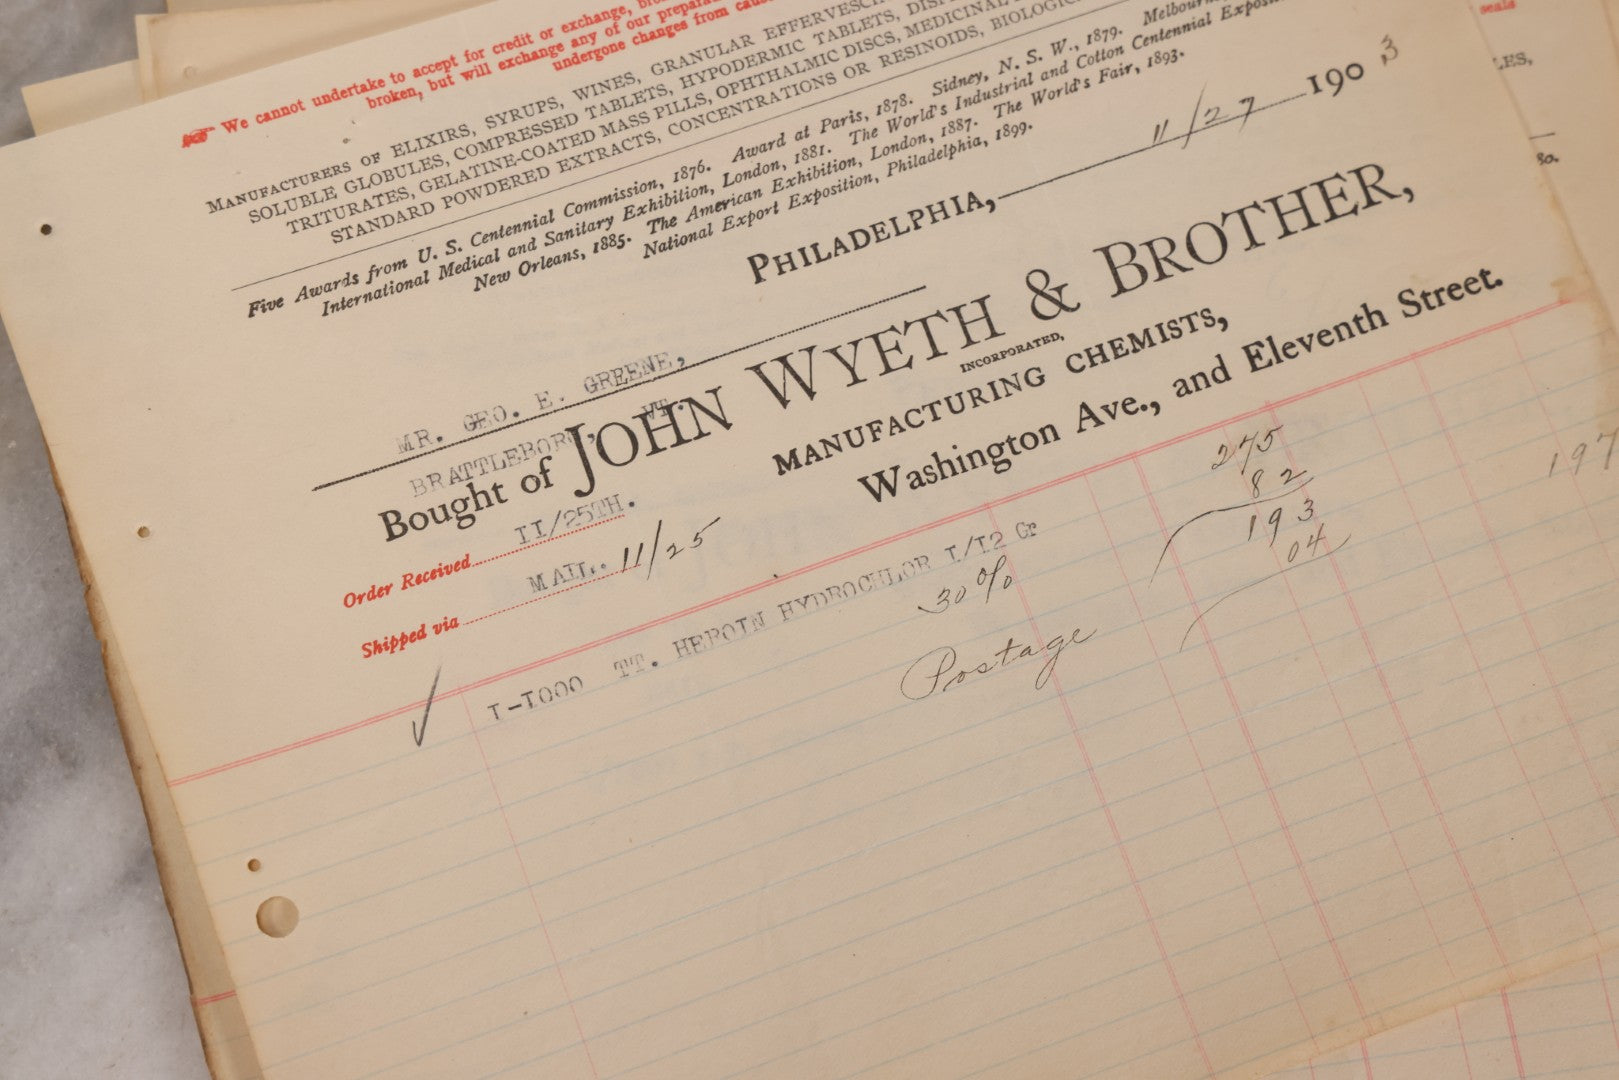 We cannot undertake to accept for credit or exchange,
broken, but will exchange any of our
undergone changes from
MANUFACTURERS OF ELIXIRS, SYRUPS, WINES, GRANULAR
SOLUBLE GLOBULES, COMPRESSED TABLETS, HYPODERMIC TABLETS,
TRITURATES, GELATINE-COATED MASS PILLS, OPHTHALMIC DISCS, MEDICINAL
STANDARD POWDERED EXTRACTS, CONCENTRATIONS OR RESINOIDS,
Five Awards from U. S. Centennial Commission, 1876. Award at Paris, 1878. Sidney, N. S. W., 1879.
International Medical and Sanitary Exhibition, London, 1881. The World's Industrial and Cotton Centennial
New Orleans, 1885. The American Exhibition, London, 1887. The World's Fair, 1893.
National Export Exposition, Philadelphia, 1899.
PHILADELPHIA, 11/27 1903
MR. GEO. E. GREENE,
BRATTLEBORO, VT.
Bought of JOHN WYETH & BROTHER,
INCORPORATED,
MANUFACTURING CHEMISTS,
Washington Ave., and Eleventh Street.
Order Received II/25TH.
Shipped via MAIL. 11/25
I-I000 TT. HEROIN HYDROCHLOR I/I2 Gr 275
30% 82
193
Postage 04
197
seals
LES,